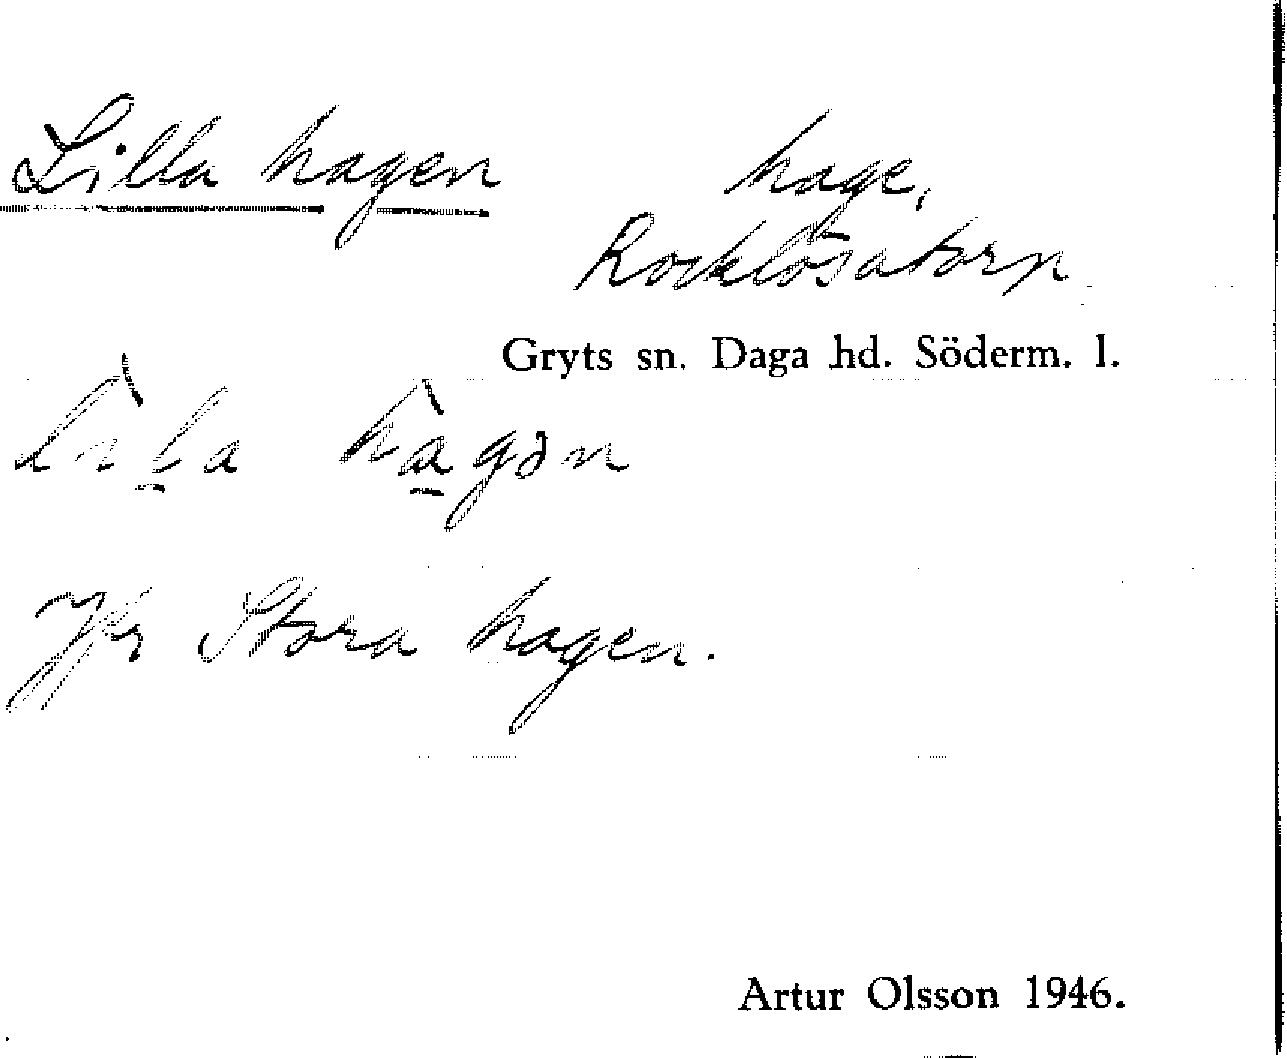 Lilla hagen
hage,
Rocklösatorp
Gryts sn. Daga hd. Söderm. l.
Jfr Stora hagen.
Artur Olsson 1946.